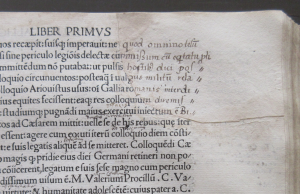 LIBER PRIMVS
nos recæpit: suisq; imperauit: ne quod omnino
sine periculo legionis delectæ cum
committendum nō putabat: ut pulsis hostib⁹ dici pos
olloquio circunuentos: posteaq̄ i uulgus militū
olloquio Ariouistus usus: oī Gallia romanis
equites fecissent: eaq; res colloquium
studiumq; pugnādi maius exercitui iniectum ē. Bi
ad Cæsarem mittit: uelle se de his rebus: quæ iter
essent: agere cum eo: uti iterū colloquio diem cōsti
ut e suis legatis aliquē ad se mitteret. Colloquēdi C
magis q̄ pridie eius diei Germani retineri non po
coniicerent, legatum e suis sese magno cum periculo
dissimum uisum ē. M. Valeriū Procilli. C. Va
& humanitate adolescētē: cuius pater a. C